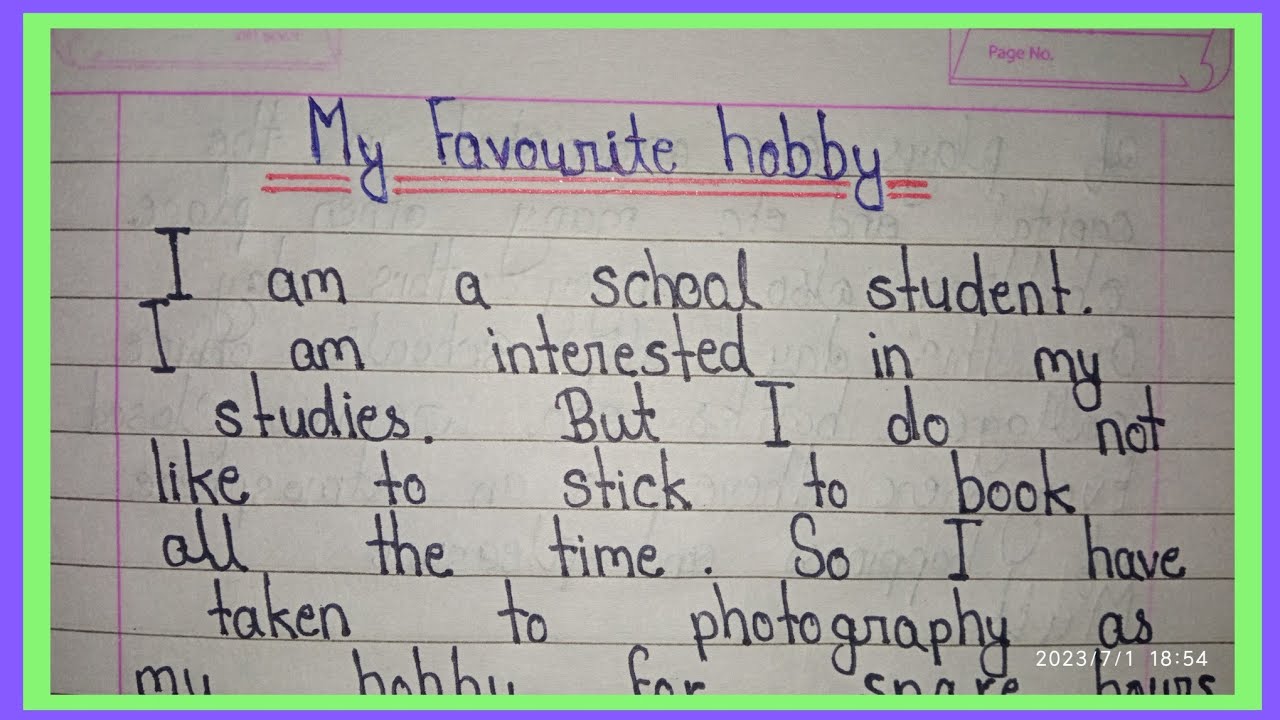 Page No.
My Favourite hobby
I am a school student.
I am interested in my
studies. But I do not
like to stick to book
all the time. So I have
taken to photography as
my hobby for spare hours
2023/7/1 18:54